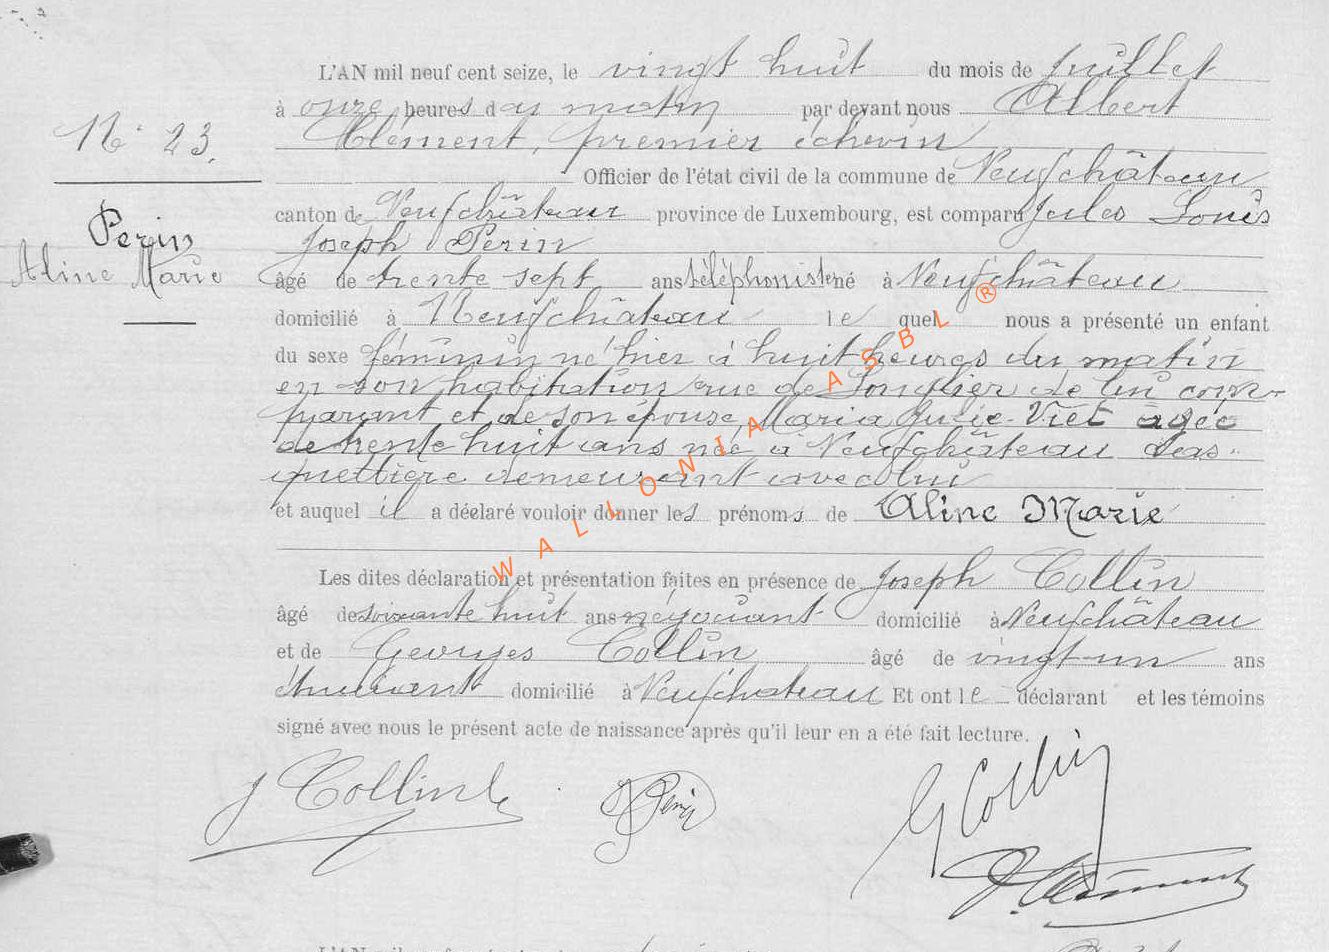 L'AN mil neuf cent seize, le vingt huit du mois de Juillet
à onze heures du matin par devant nous Albert
Clément, premier échevin
Officier de l'état civil de la commune de Neufchâteau
canton de Neufchâteau province de Luxembourg, est comparu Jules Louis
Joseph Perin
âgé de trente sept ans téléphoniste né à Neufchâteau
domicilié à Neufchâteau lequel nous a présenté un enfant
du sexe féminin né hier à huit heures du matin
en son habitation rue de de lui com-
parant et de son épouse, Maria âgée
de trente huit ans née à Neufchâteau cas-
quettière demeurant avec lui
et auquel il a déclaré vouloir donner les prénoms de Aline Marie
Les dites déclaration et présentation faites en présence de Joseph Collin
âgé de soixante huit ans négociant domicilié à Neufchâteau
et de Georges Collin âgé de vingt-un ans
étudiant domicilié à Neufchateau Et ont le déclarant et les témoins
signé avec nous le présent acte de naissance après qu'il leur en a été fait lecture.
N° 23.
Perin
Aline Marie
J Collin
J Perin
G Collin
Clément
WALLONIA ASBL ®
L'AN mil